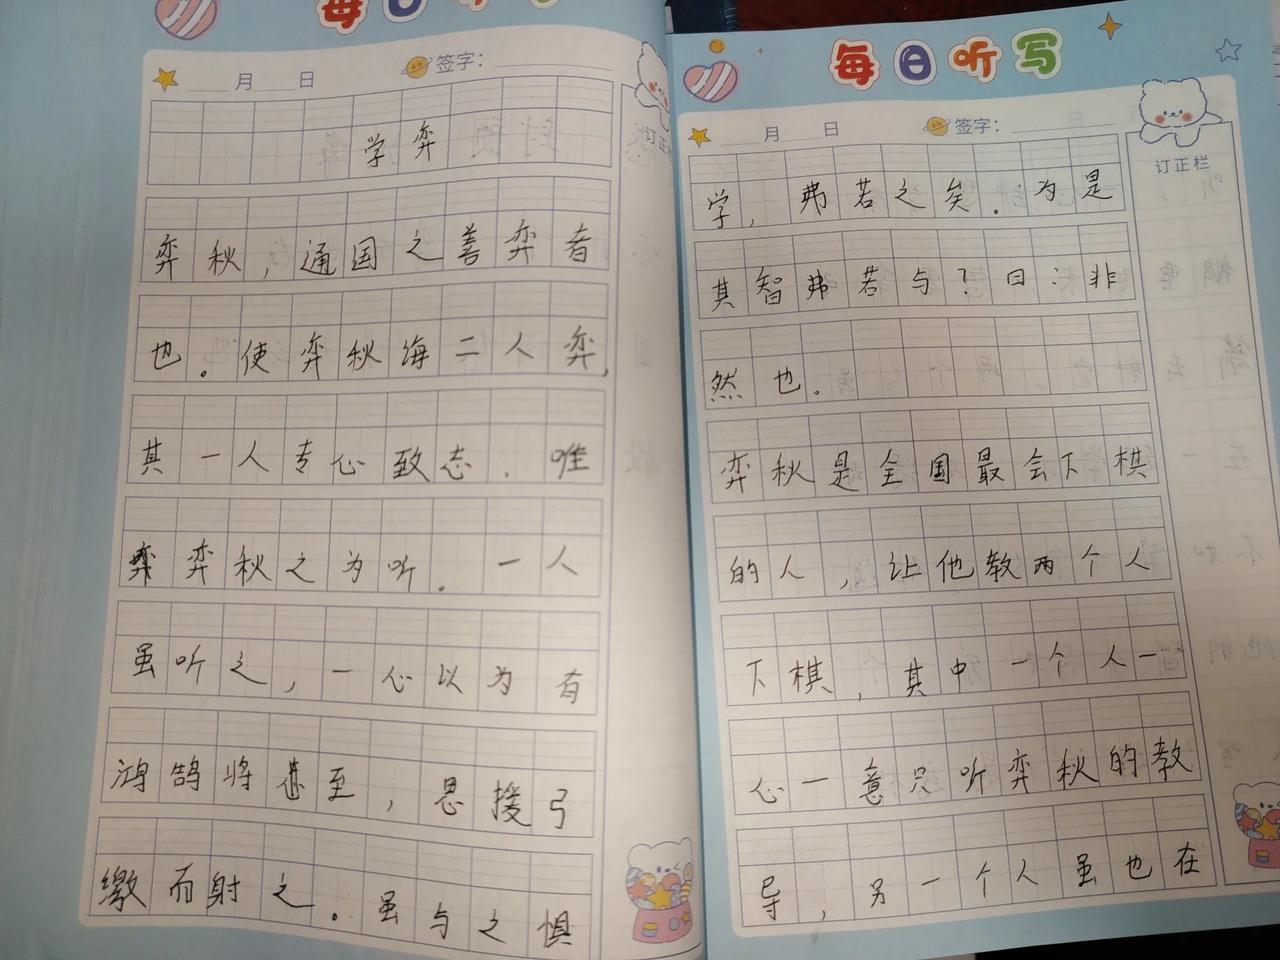 每日听写
月 日 签字：
学弈
弈秋，通国之善弈者
也。使弈秋海二人弈，
其一人专心致志，唯
弈秋之为听。一人
虽听之，一心以为有
鸿鹄将甚至，思援弓
缴而射之。虽与之惧
每日听写
月 日 签字：
订正栏
学，弗若之矣。为是
其智弗若与？曰：非
然也。
弈秋是全国最会下棋
的人，让他教两个人
下棋，其中一个人一
心一意只听弈秋的教
导，另一个人虽也在